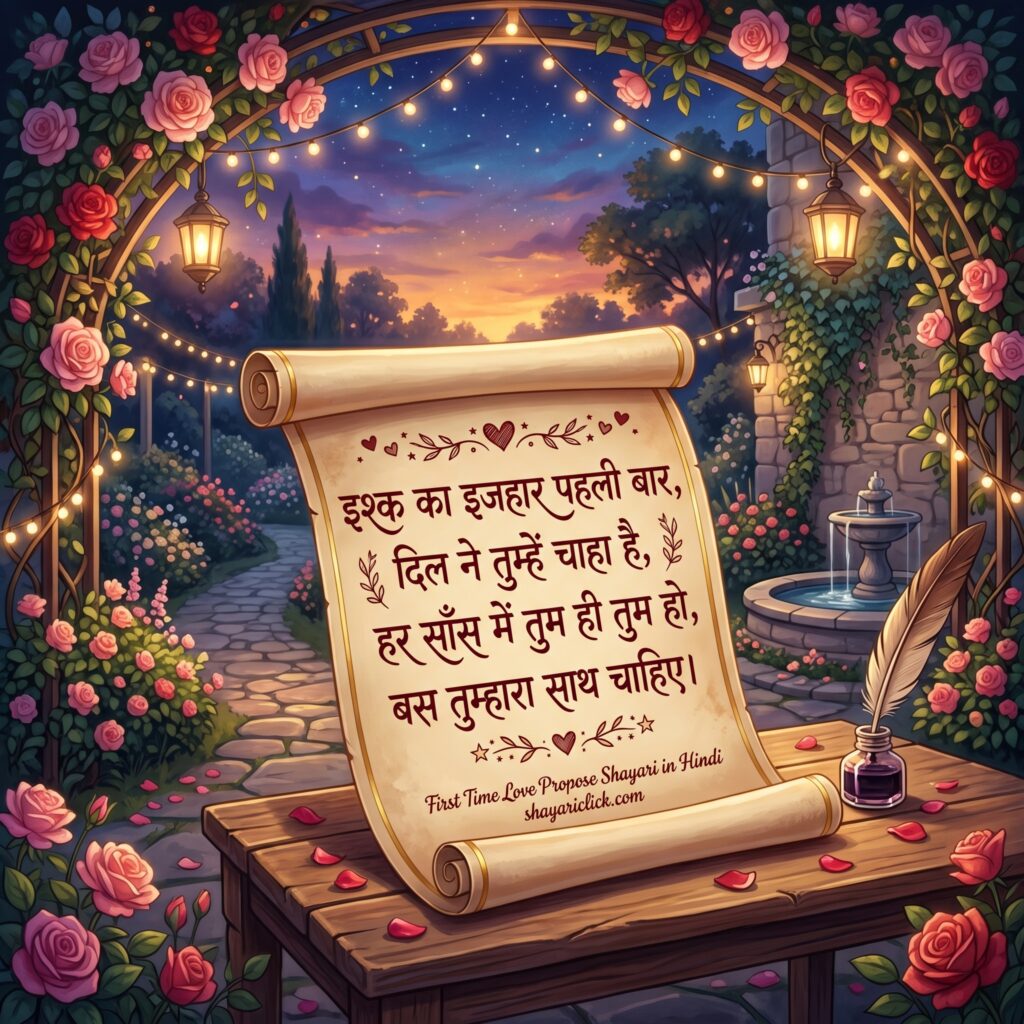 इश्क का इजहार पहली बार,
दिल ने तुम्हें चाहा है,
हर साँस में तुम ही तुम हो,
बस तुम्हारा साथ चाहिए।
First Time Love Propose Shayari in Hindi
shayariclick.com